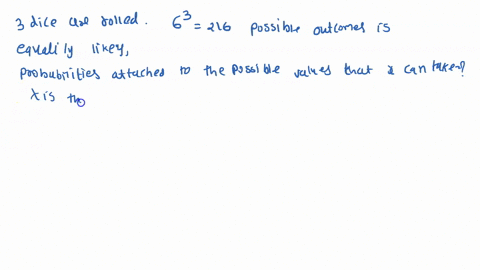 3 dice are rolled. 6³ = 216 possible outcomes is
equality likey,
probabilities attached to the possible values that x can taken?
X is th